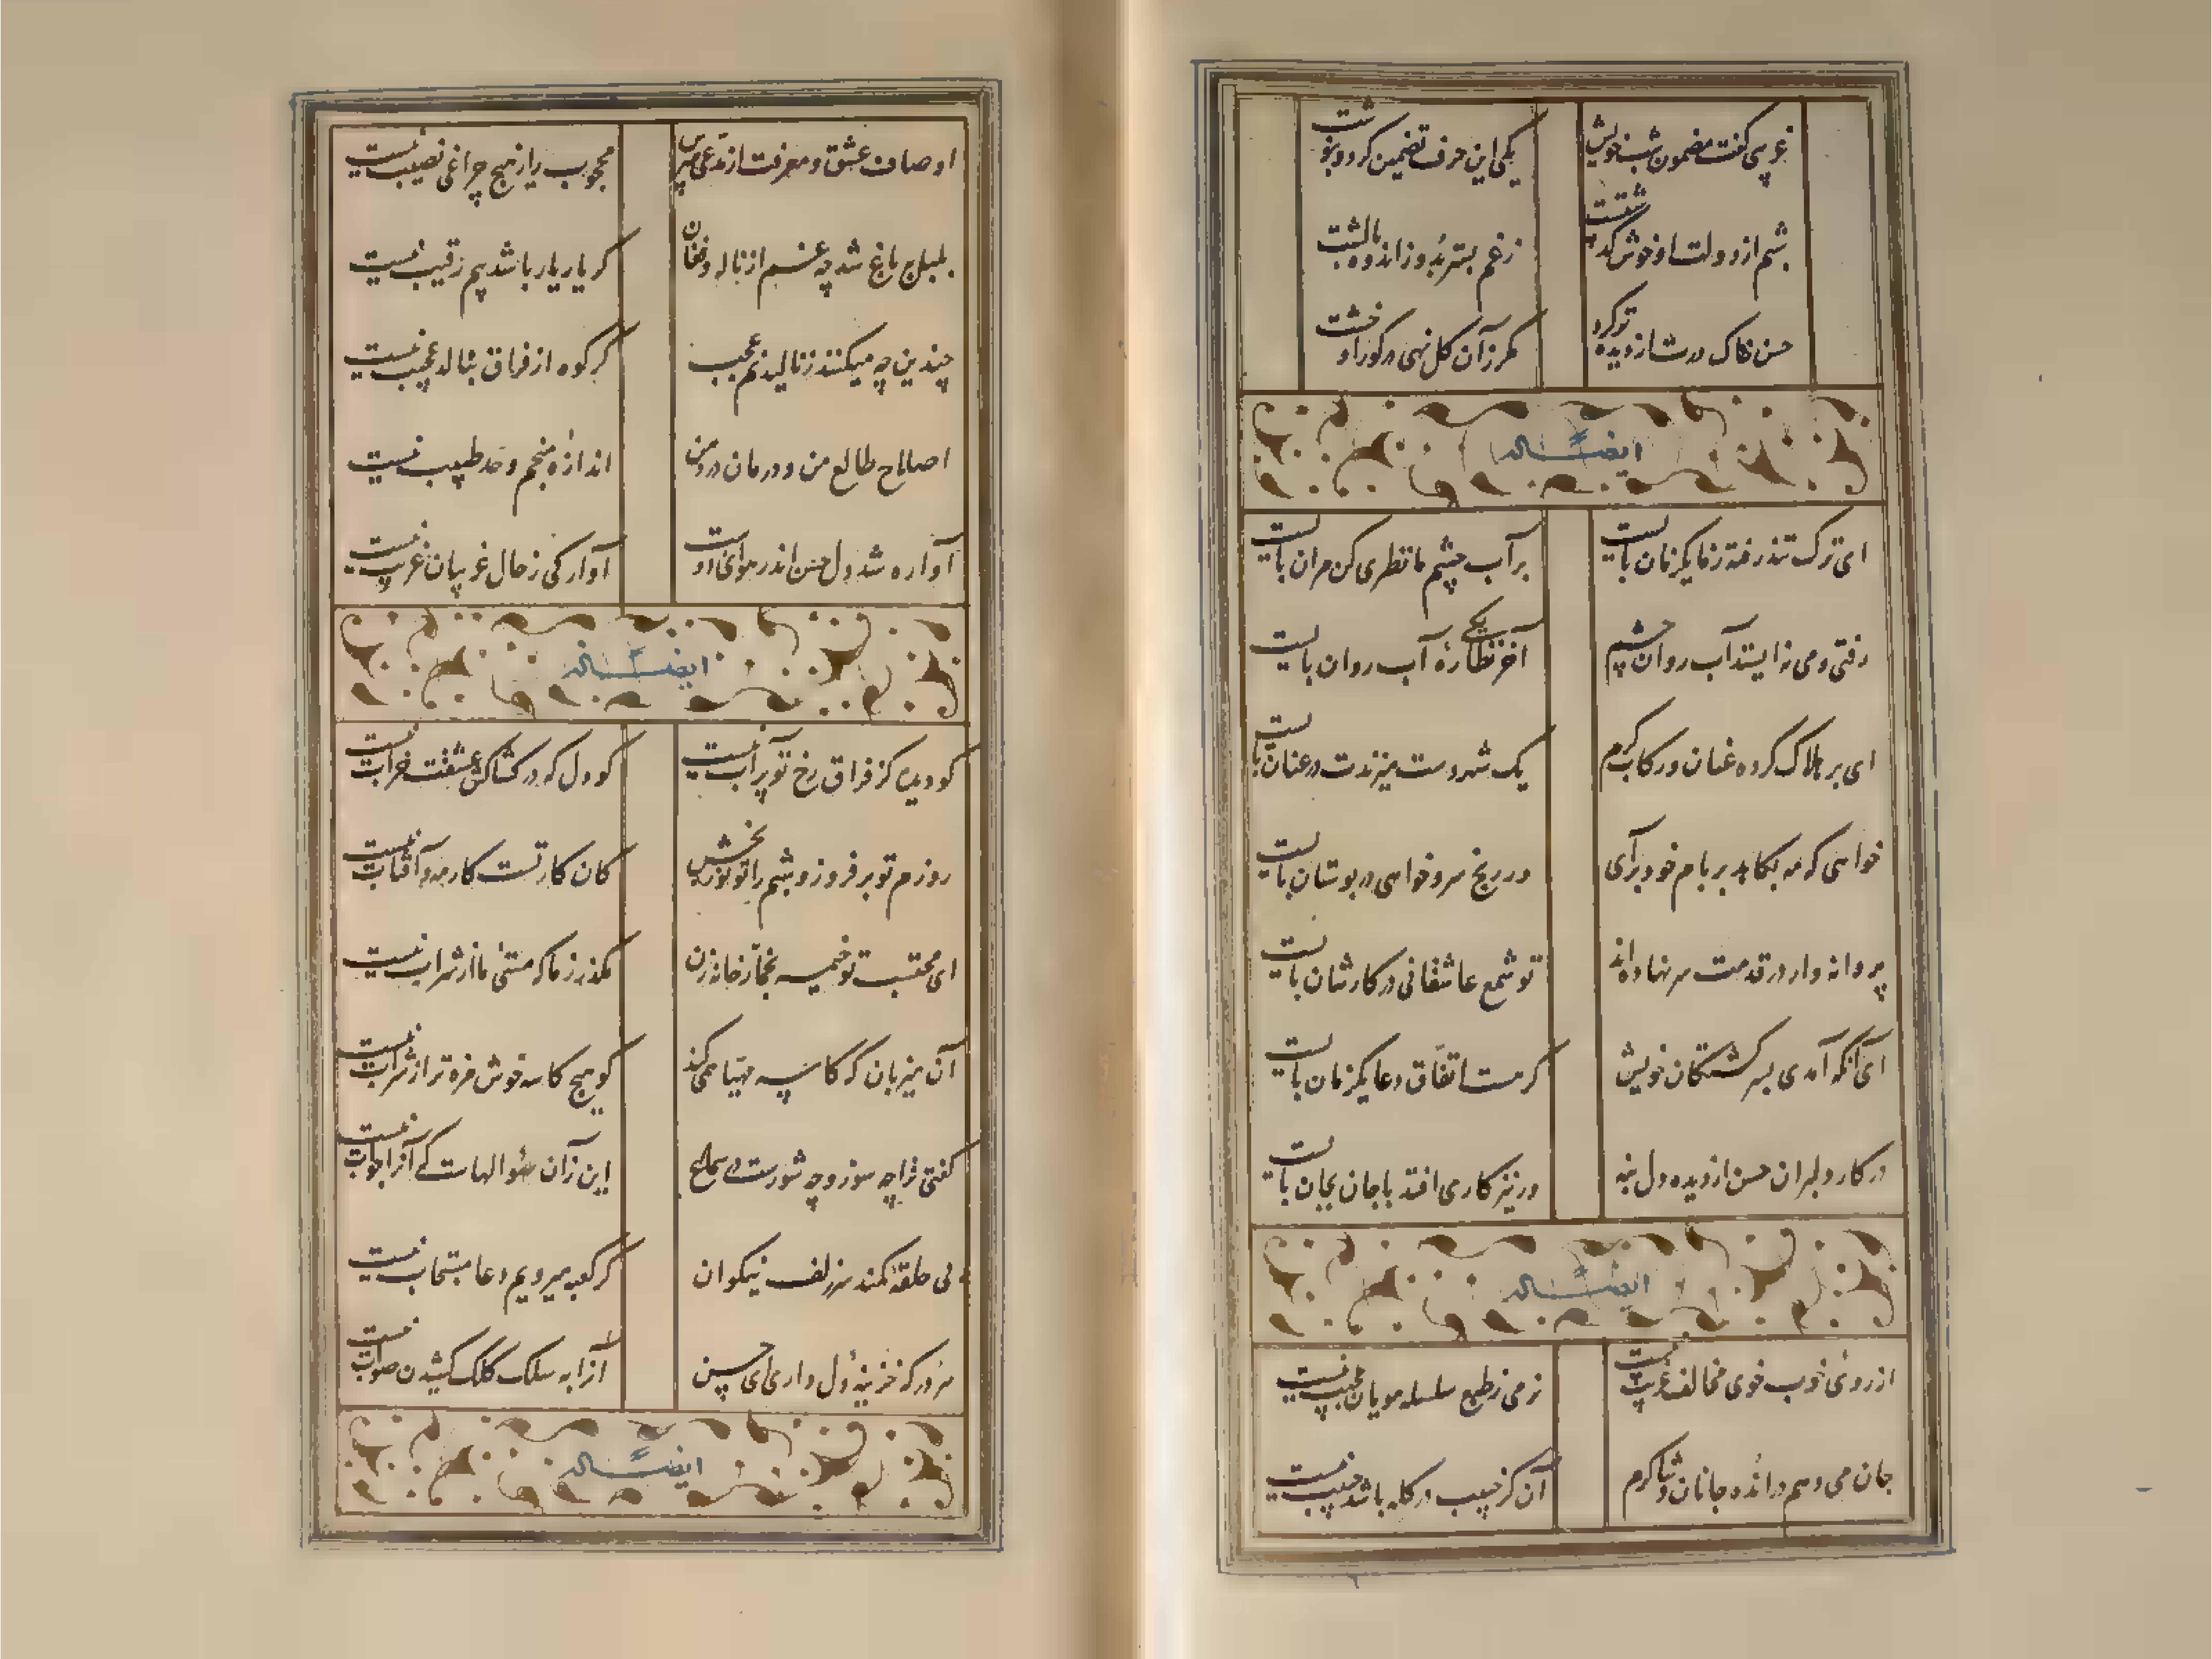 غریبی گفت مضمون شب خویش
یکی این حرف تضمین کرد و بنوشت
شبم از دولت او خوش گذشتست
ز غم بستر بد و ز اندوه بالشت
حسن خاک درت از دیده تر کرد
مگر زان گل نهی در گور او خشت
ایضاً له
ای ترک تند رفته ز ما یکزمان بایست
بر آب چشم ما نظری کن مران بایست
رفتی و می نه ایستد آب روان چشم
آخر نظاره آب روان بایست
ای بر هلاک کرده عنان در رکاب کرم
یک شهر دست میزندت در عنان بایست
خواهی که مه بکاهد بر بام خود برآی
ور رنج سرو خواهی در بوستان بایست
پروانه وار در قدمت سر نهاده‌اند
تو شمع عاشقانی در کارشان بایست
ای آنکه آمدی بسر کشتگان خویش
گر هست اتفاق دعا یکزمان بایست
در کار دلبران حسن از دیده دل بنه
ور نیز کاری افتد با جان بجان بایست
ایضاً له
از روی خوب خوی مخالف غریب نیست
نرمی ز طبع سلسله مویان عجیب نیست
جان می‌دهم در انده جانان و شاکرم
آن کز حبیب در گله باشد حبیب نیست
اوصاف عشق و معرفت از مدعی مپرس
محجوب را ز هیچ چراغی نصیب نیست
بلبل بباغ شد چه غم از ناله و فغان
گر یار یار باشد بیم رقیب نیست
چندین چه میکنند ز نالیدنم عجب
گر کوه از فراق بنالد عجیب نیست
اصلاح طالع من و درمان درد من
اندازه منجم و حد طبیب نیست
آواره شد دل حسن اندر هوای دوست
آوارگی ز حال غریبان غریب نیست
ایضاً له
کو دیده کز فراق رخ تو پر آب نیست
کو دل که در کشاکش عشقت خراب نیست
روزم تو بر فروز و شبم را تو نور بخش
کان کار تست کار مه و آفتاب نیست
ای محتسب تو خیمه بخمارخانه زن
بگذر ز ما که مستی ما از شراب نیست
آن میزبان که کاسه مهیا همی کند
گو هیچ کاسه خوش مزه تر از شراب نیست
گفتی ترا چه سوز و چه شورست در سماع
این زان سؤالهاست که آنرا جواب نیست
بی حلقه کمند سر زلف نیکوان
گر کعبه میرویم دعا مستجاب نیست
هر در که در خزینه دل داری ای حسن
آنرا به سلک کلک کشیدن صواب نیست
ایضاً له